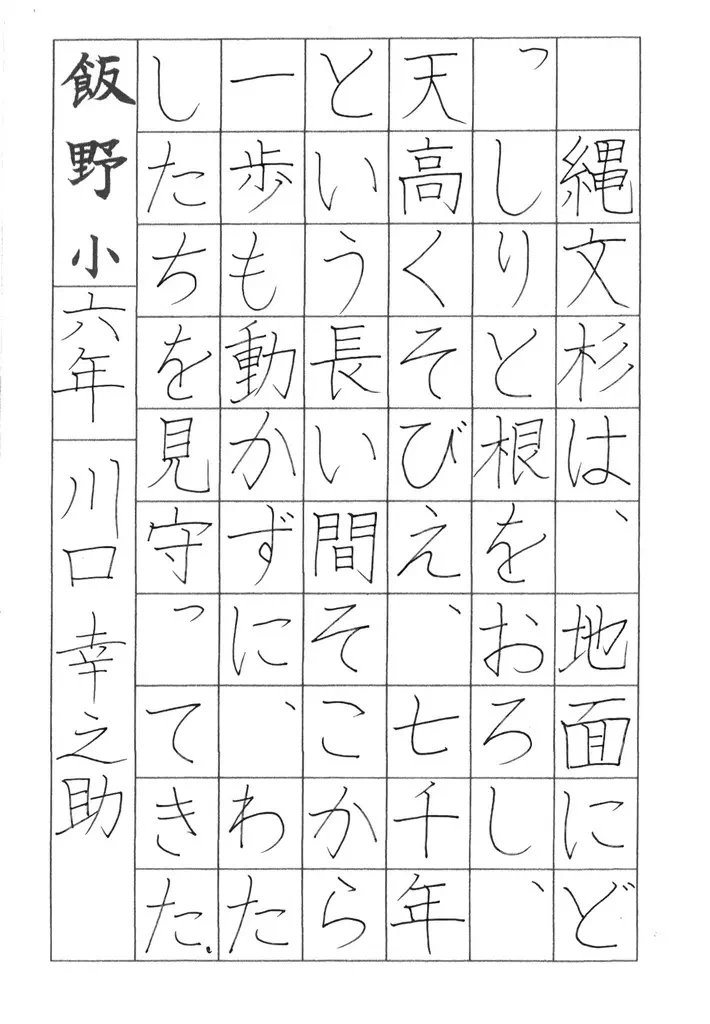 縄文杉は、地面にど
っしりと根をおろし、
天高くそびえ、七千年
という長い間そこから
一歩も動かずに、わた
したちを見守ってきた。
飯野小 六年 川口幸之助